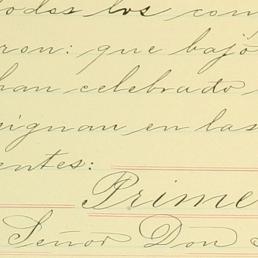 todos los con
ron: que bajo
han celebrado
signan en las
entes:
Prime
Señor Don